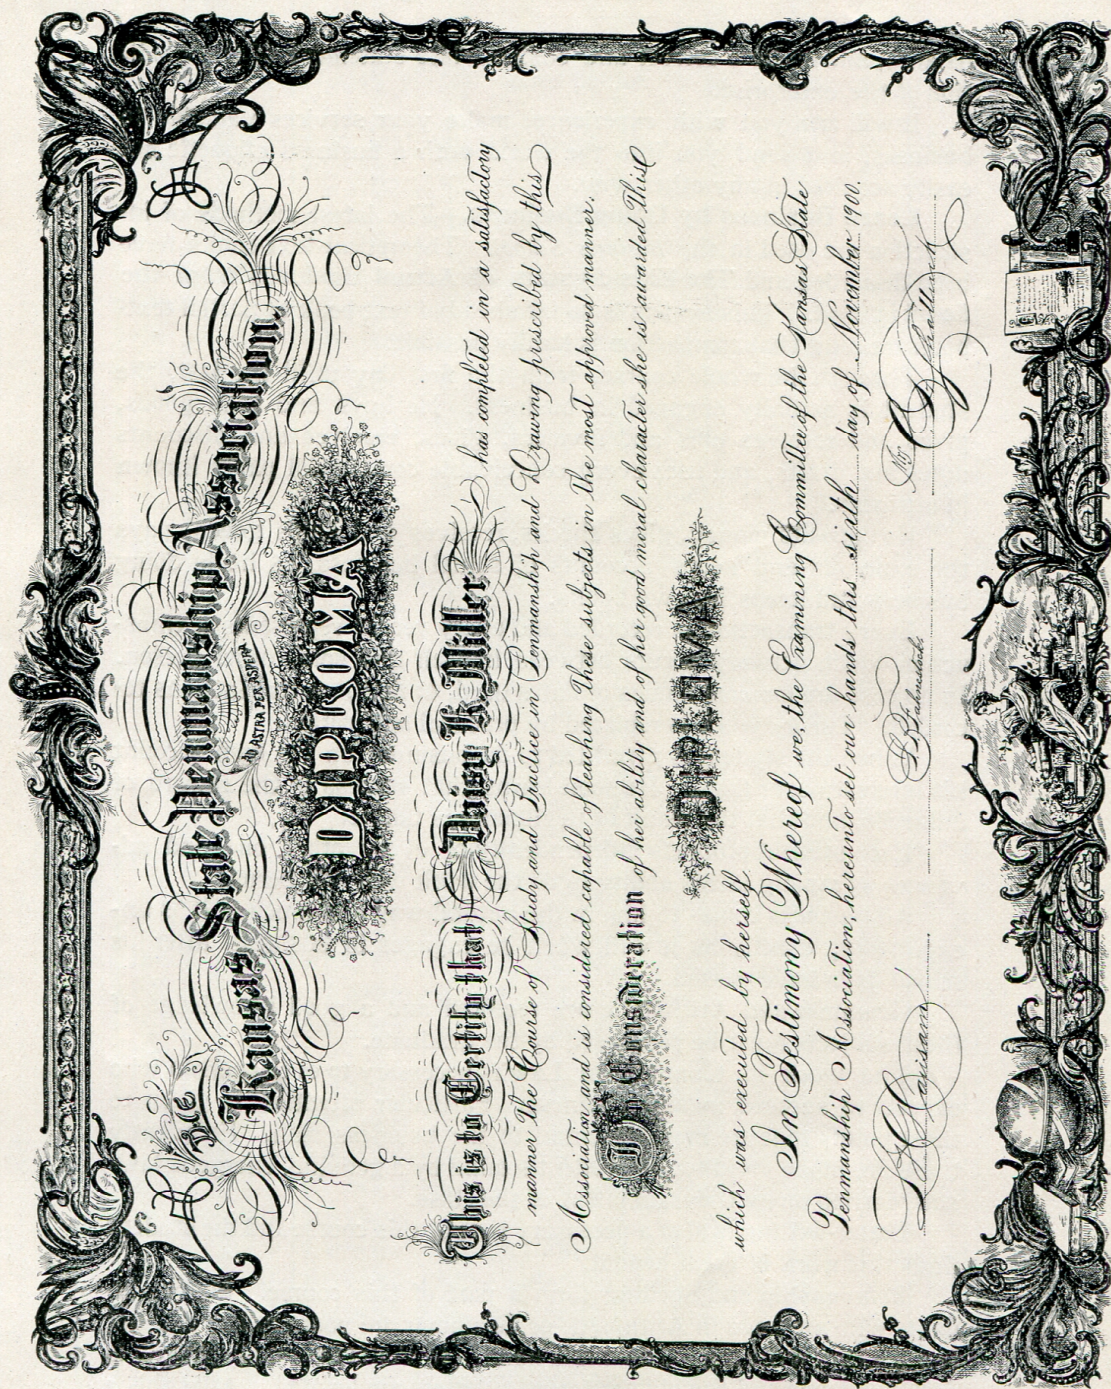 The
Kansas State Penmanship Association.
AD ASTRA PER ASPERA
DIPLOMA
This is to Certify that Daisy K. Miller has completed in a satisfactory
manner the Course of Study and Practice in Penmanship and Drawing prescribed by this
Association and is considered capable of teaching these subjects in the most approved manner.
In Consideration of her ability and of her good moral character she is awarded This
DIPLOMA
which was executed by herself
In Testimony Whereof we, the Examining Committee of the Kansas State
Penmanship Association, hereunto set our hands this sixth day of November 1900.
L. Fahnestock